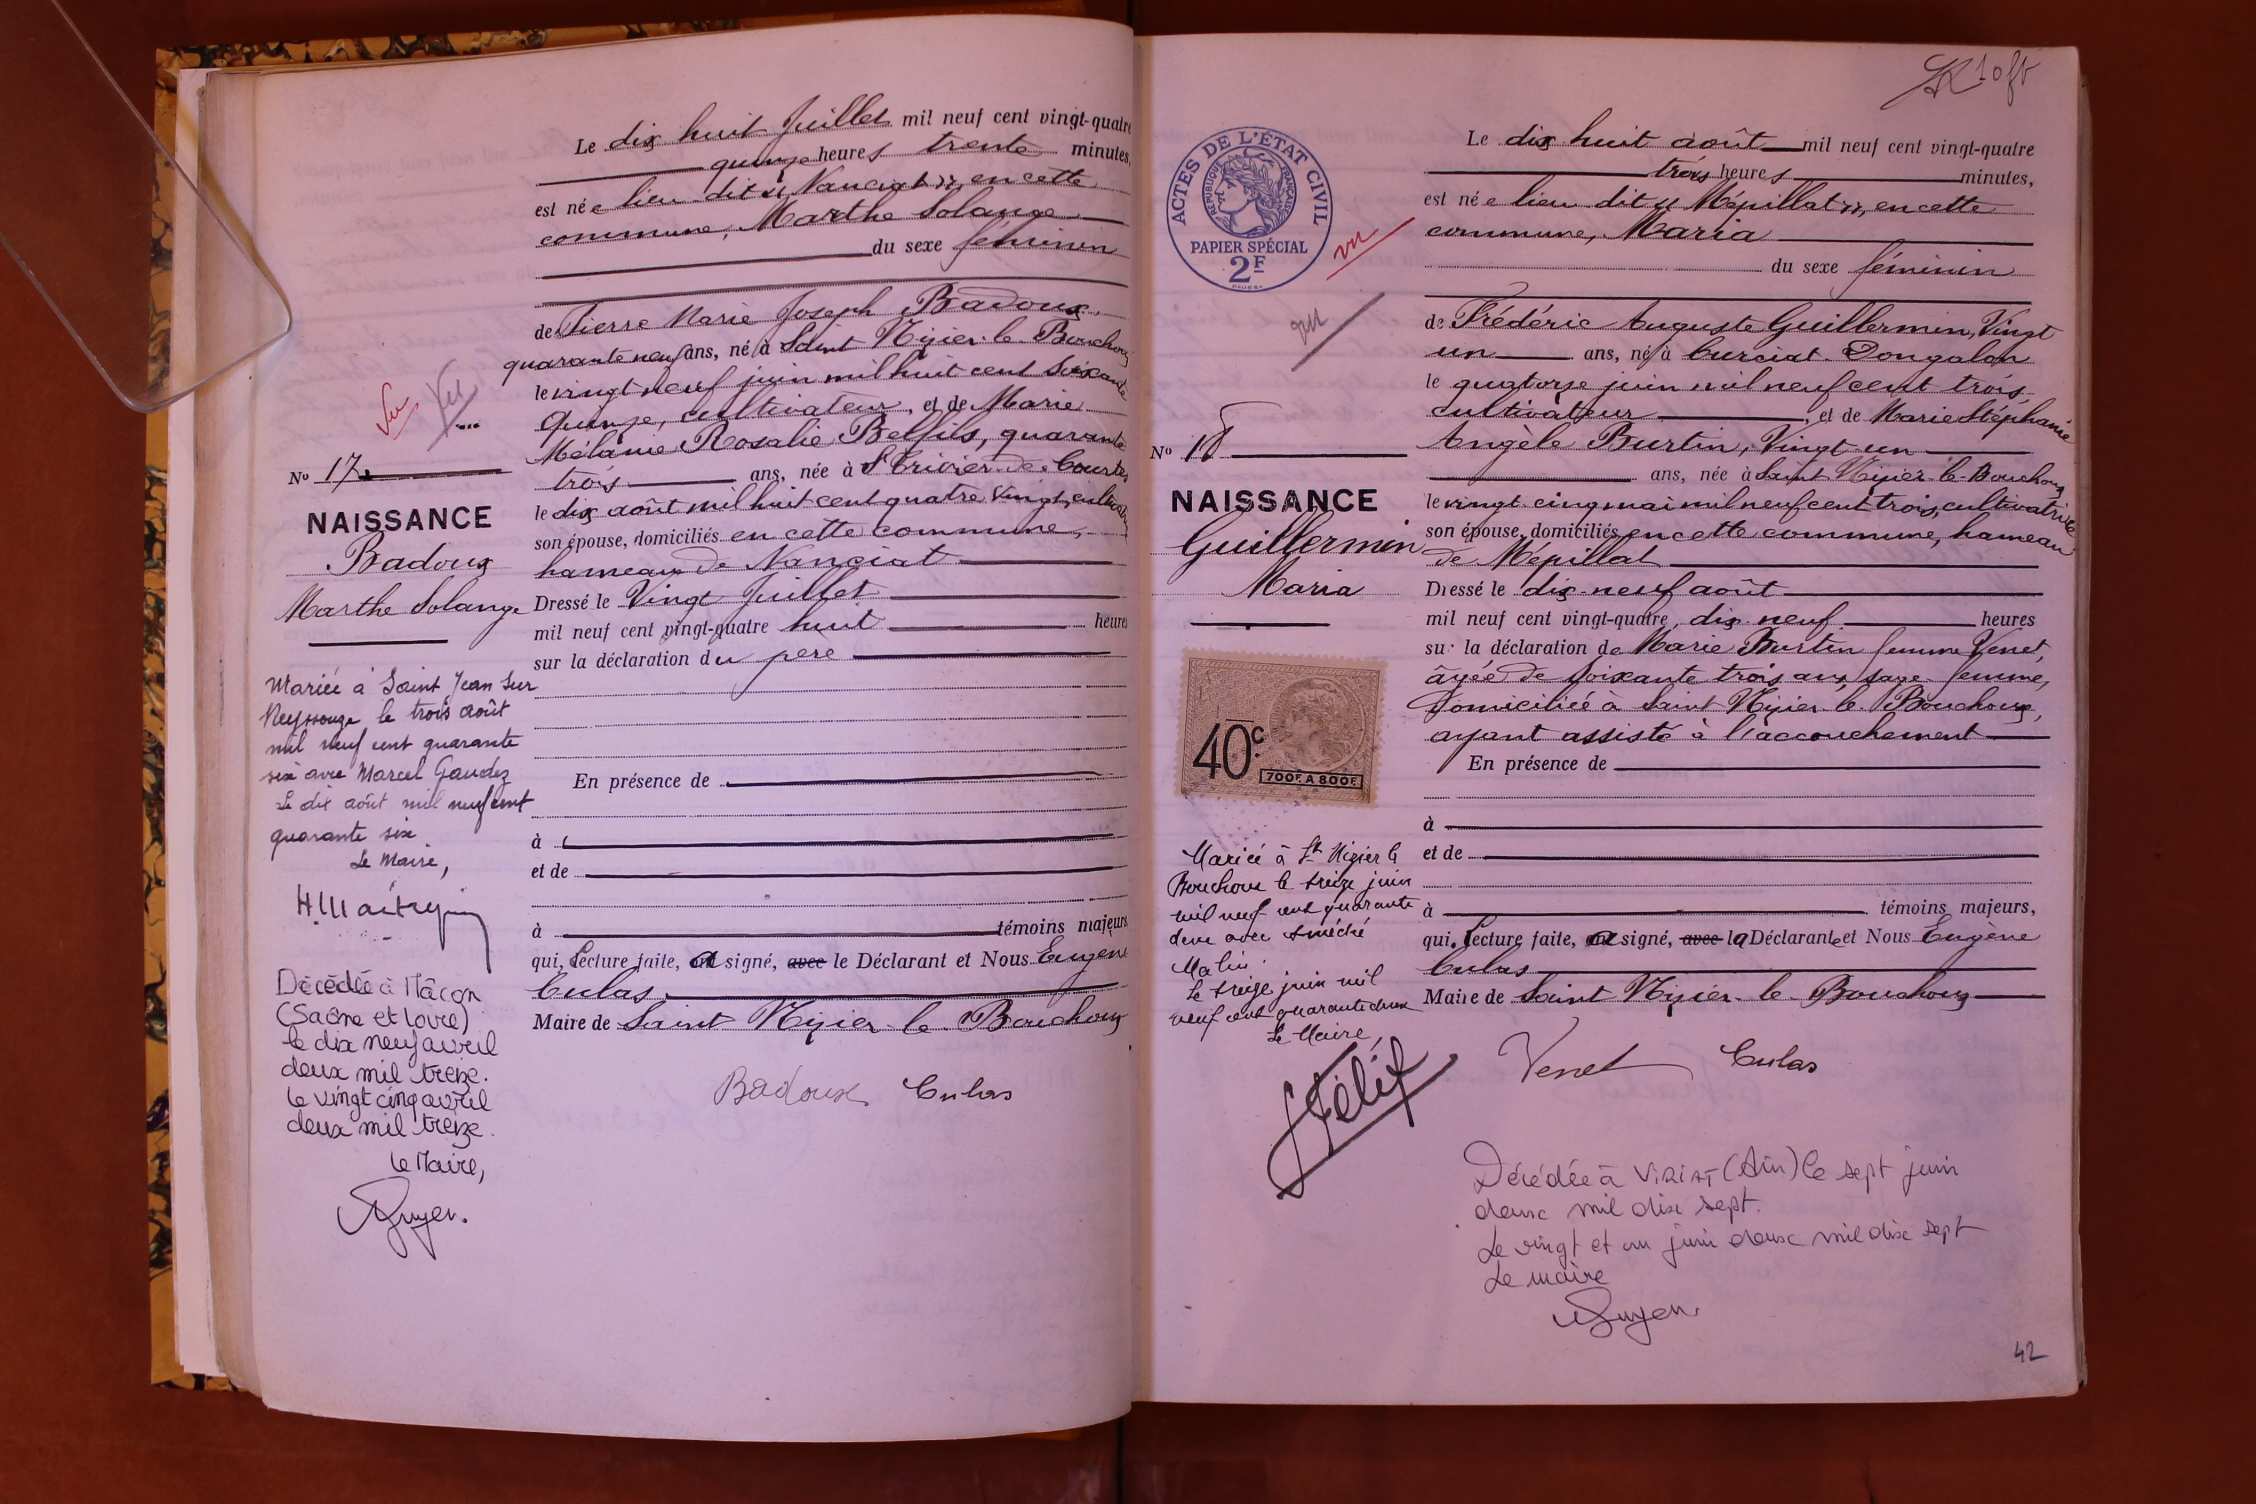 Le dix huit Juillet mil neuf cent vingt-quatre
quinze heures trente minutes,
est née lieu dit « Nanciat », en cette
commune, Marthe Solange
du sexe féminin
de Pierre Marie Joseph Badoux,
quarante neuf ans, né à Saint Nizier-le-Bouchoux
le vingt neuf juin mil huit cent soixante
quinze, cultivateur, et de Marie
Mélanie Rosalie Belfils, quarante
trois ans, née à St Trivier-de-Courtes
le dix août mil huit cent quatre vingt, cultivatrice
son épouse, domiciliés en cette commune,
hameau de Nanciat
Dressé le Vingt Juillet
mil neuf cent vingt-quatre huit heures
sur la déclaration du père
En présence de
à
et de
à témoins majeurs
qui, Lecture faite, a signé, avec le Déclarant et Nous Eugène
Culas
Maire de Saint Nizier-le-Bouchoux
Badoux Culas
Vu Vu
No 17
NAISSANCE
Badoux
Marthe Solange
Mariée à Saint Jean sur
Reyssouze le trois août
mil neuf cent quarante
six avec Marcel Gaudez
Le dix août mil neuf cent
quarante six
Le Maire,
Décédée à Mâcon
(Saône et Loire)
le dix neuf avril
deux mil treize.
le vingt cinq avril
deux mil treize.
Le Maire,
ACTES DE L'ÉTAT CIVIL
RÉPUBLIQUE FRANÇAISE
PAPIER SPÉCIAL
2F
vu
vu
No 18
NAISSANCE
Guillermin
Maria
40c
700F. A 800F.
Mariée à St Nizier le
Bouchoux le treize juin
mil neuf cent quarante
deux avec Aimé
Malin.
Le treize juin mil
neuf cent quarante deux
Le Maire,
Félix
Le dix huit août mil neuf cent vingt-quatre
trois heures minutes,
est née lieu dit « Mépillat », en cette
commune, Maria
du sexe féminin
de Frédéric Auguste Guillermin, Vingt
un ans, né à Curciat-Dongalon
le quatorze juin mil neuf cent trois
cultivateur, et de Marie Stéphanie
Angèle Burtin, Vingt-un
ans, née à Saint Nizier-le-Bouchoux
le vingt-cinq mai mil neuf cent trois, cultivatrice
son épouse, domiciliés en cette commune, hameau
de Mépillat
Dressé le dix-neuf août
mil neuf cent vingt-quatre, dix-neuf heures
sur la déclaration de Marie Burtin femme Venet,
âgée de soixante trois ans, sage-femme,
domiciliée à Saint Nizier-le-Bouchoux,
ayant assisté à l'accouchement
En présence de
à
et de
à témoins majeurs,
qui, Lecture faite, a signé, avec la Déclarante et Nous Eugène
Culas
Maire de Saint Nizier-le-Bouchoux
Venet Culas
Décédée à VIRIAT (Ain) le sept juin
deux mil dix sept.
Le vingt et un juin deux mil dix sept
Le maire
42